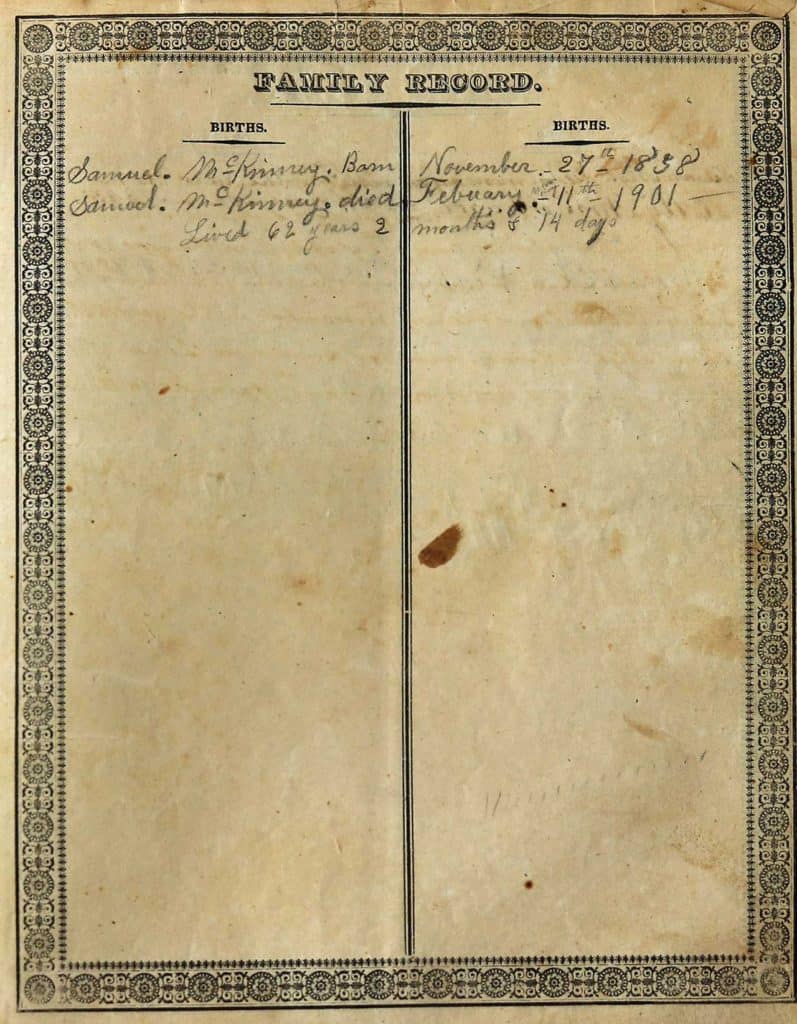 FAMILY RECORD.
BIRTHS. BIRTHS.
Samuel. McKinney. Born November. 27th 1838
Samuel. McKinney. died Febuary 11th 1901
Lived 62 years 2 months & 14 days